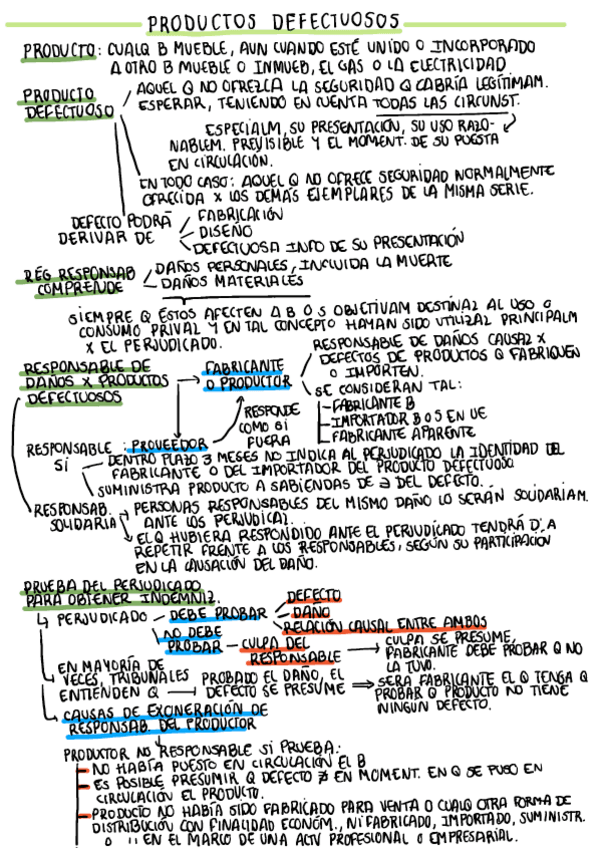 PRODUCTOS DEFECTUOSOS
PRODUCTO: CUALQ B MUEBLE, AUN CUANDO ESTÉ UNIDO O INCORPORADO
A OTRO B MUEBLE O INMUEB, EL GAS O LA ELECTRICIDAD
PRODUCTO DEFECTUOSO
AQUEL Q NO OFREZCA LA SEGURIDAD Q CABRÍA LEGÍTIMAM.
ESPERAR, TENIENDO EN CUENTA TODAS LAS CIRCUNST.
ESPECIALM, SU PRESENTACIÓN, SU USO RAZO-
NABLEM. PREVISIBLE Y EL MOMENT. DE SU PUESTA
EN CIRCULACIÓN.
EN TODO CASO: AQUEL Q NO OFRECE SEGURIDAD NORMALMENTE
OFRECIDA X LOS DEMÁS EJEMPLARES DE LA MISMA SERIE.
DEFECTO PODRÁ
DERIVAR DE
FABRICACIÓN
DISEÑO
DEFECTUOSA INFO DE SU PRESENTACIÓN
RÉG RESPONSAB
COMPRENDE
DAÑOS PERSONALES, INCLUIDA LA MUERTE
DAÑOS MATERIALES
SIEMPRE Q ÉSTOS AFECTEN A B O S OBJETIVAM DESTINAZ AL USO O
CONSUMO PRIVAZ Y EN TAL CONCEPTO HAYAN SIDO UTILIZAZ PRINCIPALM
X EL PERJUDICADO.
RESPONSABLE DE
DAÑOS X PRODUCTOS
DEFECTUOSOS
FABRICANTE
O PRODUCTOR
RESPONSABLE DE DAÑOS CAUSAZ X
DEFECTOS DE PRODUCTOS Q FABRIQUEN
O IMPORTEN.
SE CONSIDERAN TAL:
FABRICANTE B
IMPORTADOR B O S EN UE
FABRICANTE APARENTE
RESPONDE
COMO SI
FUERA
RESPONSABLE : PROVEEDOR
SÍ
DENTRO PLAZO 3 MESES NO INDICA AL PERJUDICADO LA IDENTIDAD DEL
FABRICANTE O DEL IMPORTADOR DEL PRODUCTO DEFECTUOSO
SUMINISTRA PRODUCTO A SABIENDAS DE ∃ DEL DEFECTO.
RESPONSAB.
SOLIDARIA
PERSONAS RESPONSABLES DEL MISMO DAÑO LO SERÁN SOLIDARIAM.
ANTE LOS PERJUDICAZ.
EL Q HUBIERA RESPONDIDO ANTE EL PERJUDICADO TENDRÁ D.A
REPETIR FRENTE A LOS RESPONSABLES, SEGÚN SU PARTICIPACIÓN
EN LA CAUSACIÓN DEL DAÑO.
PRUEBA DEL PERJUDICADO
PARA OBTENER INDEMNIZ.
PERJUDICADO
DEBE PROBAR
DEFECTO
DAÑO
RELACIÓN CAUSAL ENTRE AMBOS
NO DEBE
PROBAR
CULPA DEL
RESPONSABLE
CULPA SE PRESUME,
FABRICANTE DEBE PROBAR Q NO
LA TUVO.
EN MAYORÍA DE
VECES, TRIBUNALES
ENTIENDEN Q
PROBADO EL DAÑO, EL
DEFECTO SE PRESUME
SERÁ FABRICANTE EL Q TENGA Q
PROBAR Q PRODUCTO NO TIENE
NINGÚN DEFECTO.
CAUSAS DE EXONERACIÓN DE
RESPONSAB. DEL PRODUCTOR
PRODUCTOR NO RESPONSABLE SI PRUEBA:
NO HABÍA PUESTO EN CIRCULACIÓN EL B
ES POSIBLE PRESUMIR Q DEFECTO ∄ EN MOMENT. EN Q SE PUSO EN
CIRCULACIÓN EL PRODUCTO.
PRODUCTO NO HABÍA SIDO FABRICADO PARA VENTA O CUALQ OTRA FORMA DE
DISTRIBUCIÓN CON FINALIDAD ECONÓM., NI FABRICADO, IMPORTADO, SUMINISTR.
O '' EN EL MARCO DE UNA ACTV PROFESIONAL O EMPRESARIAL.